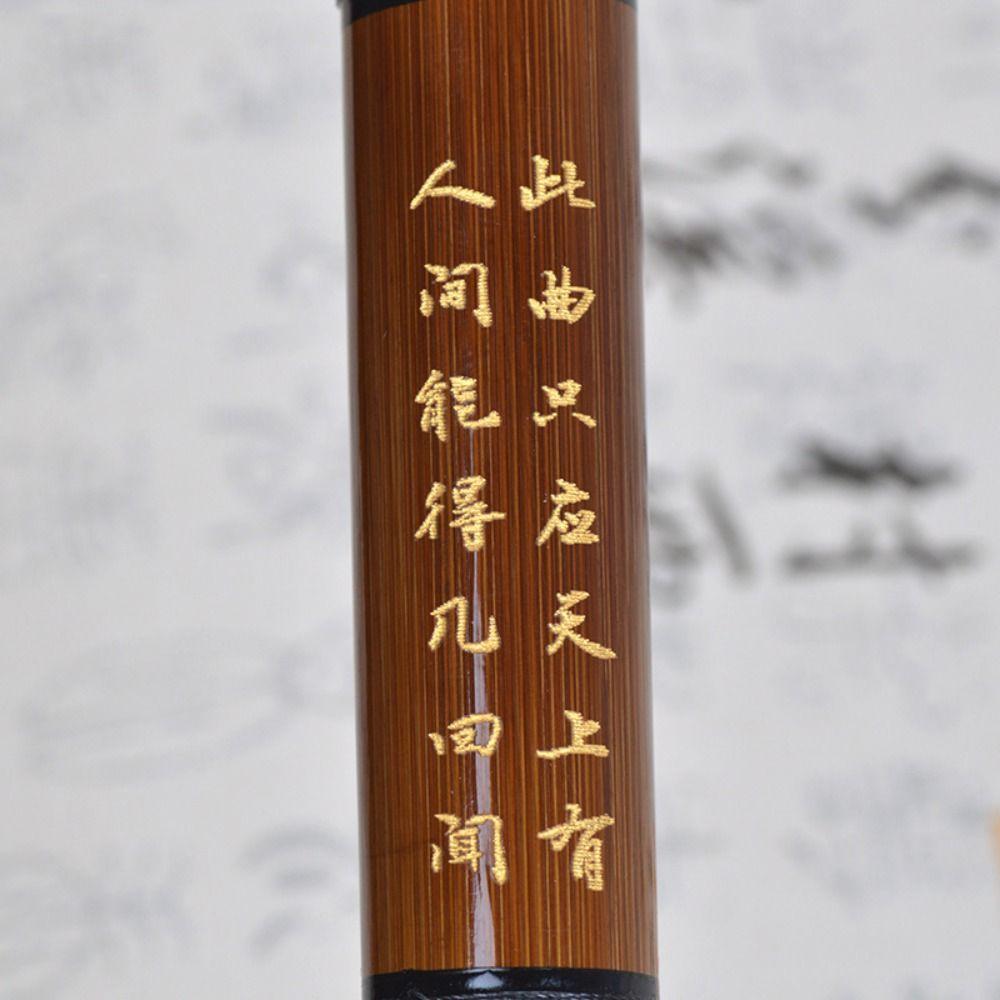 此曲只应天上有
人间能得几回闻